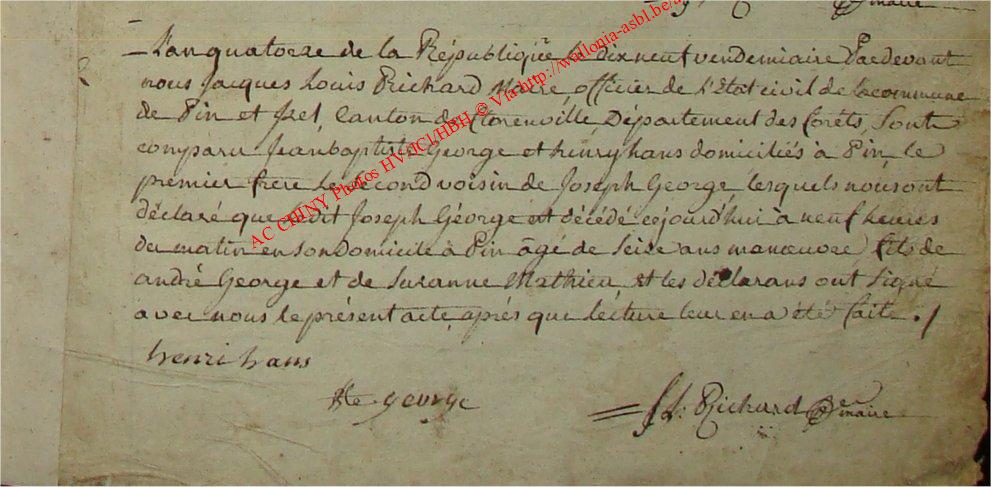 maire
L'an quatorze de la République le dix neuf vendemiaire Pardevant
nous Jacques Louis Richard Maire, officier de l'Etat civil de la commune
de Pin et Izel, Canton de florenville, Département des forêts, Sont
comparu Jean baptiste George et henry hans domiciliés à Pin, le
premier frère le second voisin de Joseph George lesquels nous ont
déclaré que ledit Joseph George est décédé cejourd'hui à neuf heures
du matin en son domicile à Pin âgé de Seize ans manœuvre, fils de
andré George et de Suzanne Mathieu, et les déclarans ont Signé
avec nous le présent acte, après que lecture leur en a été faite. /
henri hans
Bte george
JL: Richard maire
AC CHINY Photos HV/JCl/HBH © Via http://wallonia-asbl.be/a